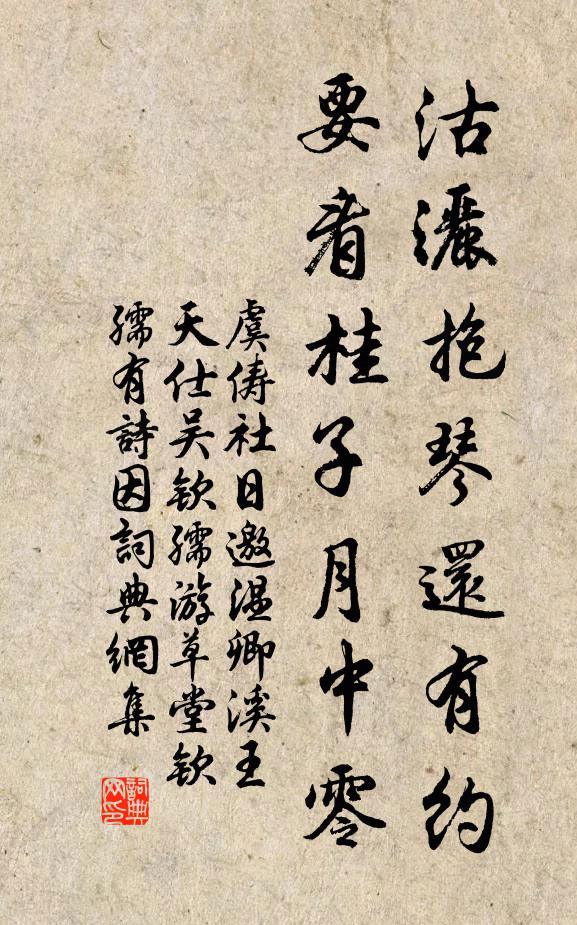 沽灑抱琴還有約
要看桂子月中零
虞儔社日邀温卿溪王
天仕吴欽孺游草堂欽
孺有詩因詞典網集
詞典网印